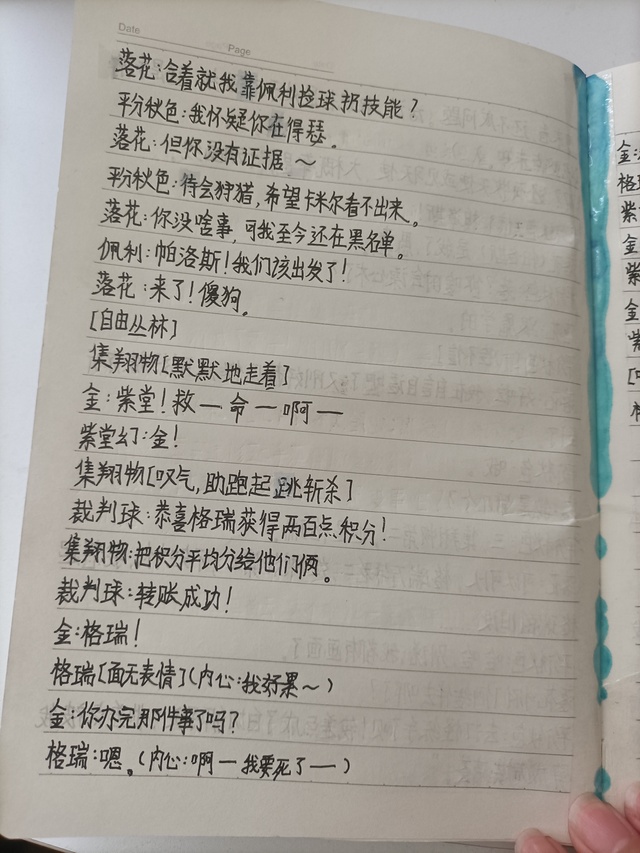 Date
Page
落花:合着就我靠佩利捡球扔技能?
平分秋色:我怀疑你在得瑟。
落花:但你没有证据～
平分秋色:待会狩猎,希望卡米尔看不出来。
落花:你没啥事,可我至今还在黑名单。
佩利:帕洛斯!我们该出发了!
落花:来了!傻狗。
[自由丛林]
集翔物[默默地走着]
金:紫堂!救一命一啊一
紫堂幻:金!
集翔物[叹气,助跑起跳斩杀]
裁判球:恭喜格瑞获得两百点积分!
集翔物:把积分平均分给他们俩。
裁判球:转账成功!
金:格瑞!
格瑞[面无表情](内心:我好累～)
金:你办完那件事了吗?
格瑞:嗯。(内心:啊一我要死了一)
金:
格瑞
紫
金
紫
金